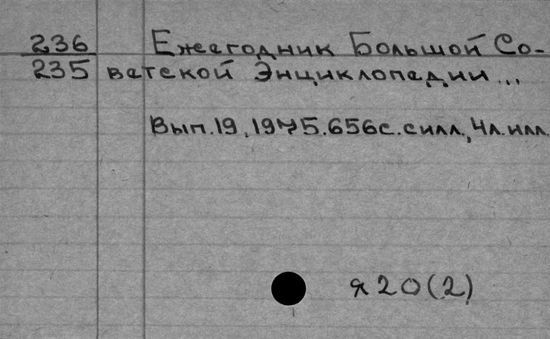 236 Ежегодник Большой Со-
235 ветской Энциклопедии...
Вып.19, 1975. 656с. с илл., 4л. илл.
я20(2)